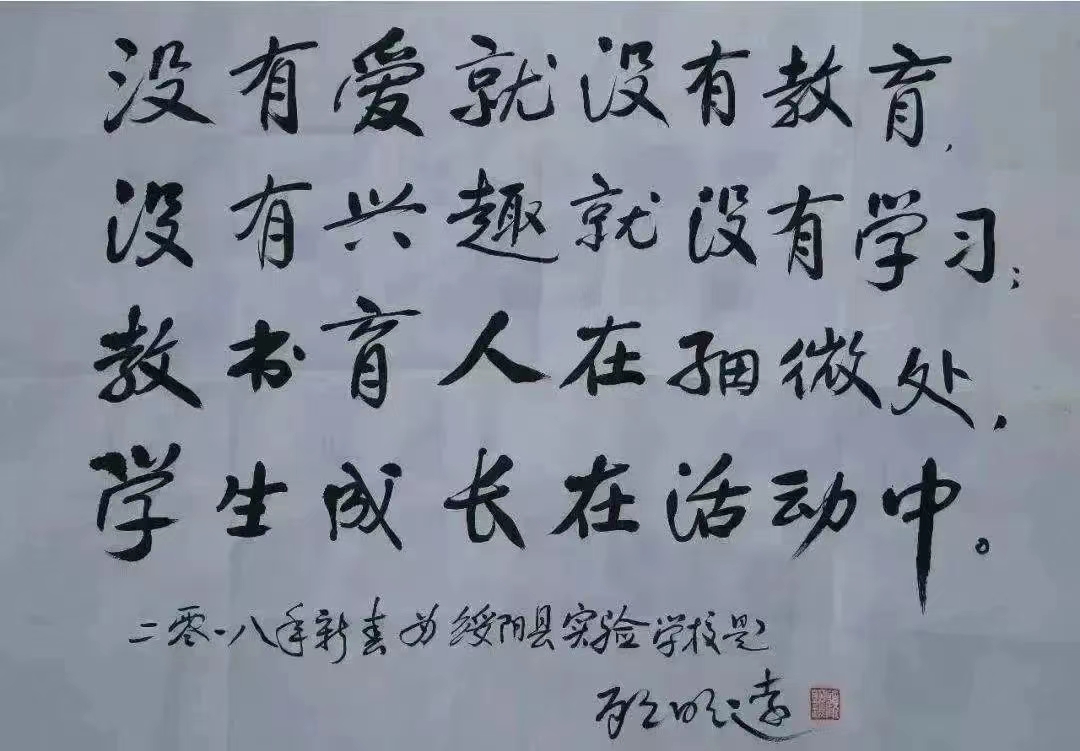 没有爱就没有教育,
没有兴趣就没有学习;
教书育人在细微处,
学生成长在活动中。
二零一八年新春为绥阳县实验学校题
顾明远